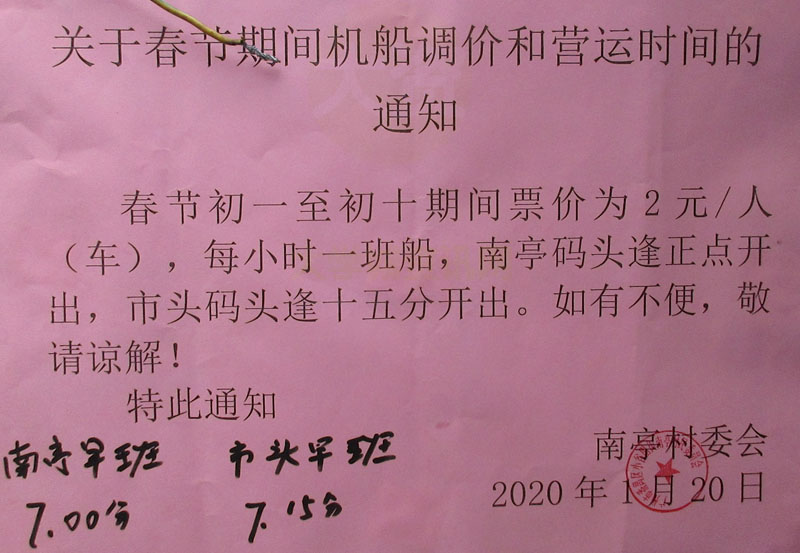 关于春节期间机船调价和营运时间的
通知
春节初一至初十期间票价为2元/人
（车），每小时一班船，南亭码头逢正点开
出，市头码头逢十五分开出。如有不便，敬
请谅解！
特此通知
南亭村委会
2020年1月20日
南亭早班 市头早班
7.00分 7.15分